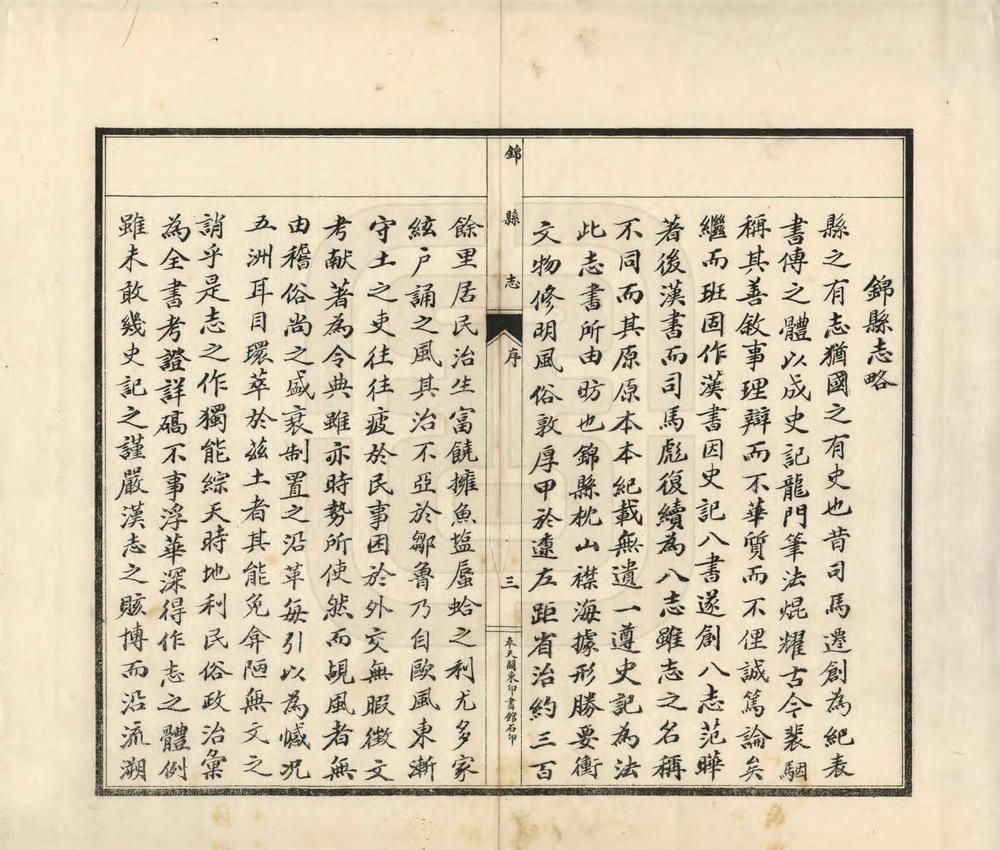 錦縣志略
縣之有志猶國之有史也昔司馬遷創為紀表
書傳之體以成史記龍門筆法焜耀古今裴駰
稱其善敘事理辯而不華質而不俚誠篤論矣
繼而班固作漢書因史記八書遂創八志范曄
著後漢書而司馬彪復續為八志雖志之名稱
不同而其原原本本紀載無遺一遵史記為法
此志書所由昉也錦縣枕山襟海據形勝要衝
文物修明風俗敦厚甲於遼左距省治約三百
錦縣志
序
三
奉天關東印書館石印
餘里居民治生富饒擁魚塩蜃蛤之利尤多家
絃戶誦之風其治不亞於鄒魯乃自歐風東漸
守土之吏往往疲於民事困於外交無暇徵文
考献著為令典雖亦時勢所使然而覘風者無
由稽俗尚之盛衰制置之沿革每引以為憾况
五洲耳目環萃於茲土者其能免弇陋無文之
誚乎是志之作獨能綜天時地利民俗政治彙
為全書考證詳碻不事浮華深得作志之體例
雖未敢幾史記之謹嚴漢志之賅博而沿流溯